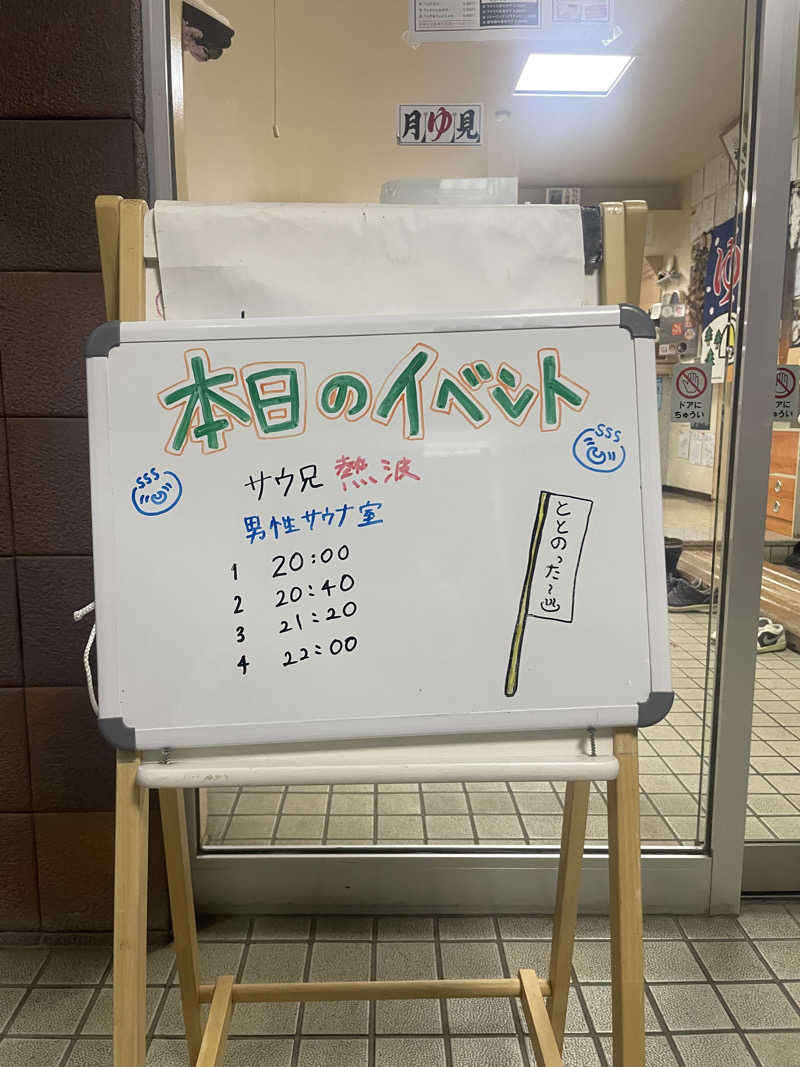 月ゆ見
ゆ
本日のイベント
SSS
SSS
サウ兄 熱波
男性サウナ室
1 20:00
2 20:40
3 21:20
4 22:00
ととのった〜♨
ドアに
ちゅうい
ドアに
ちゅうい